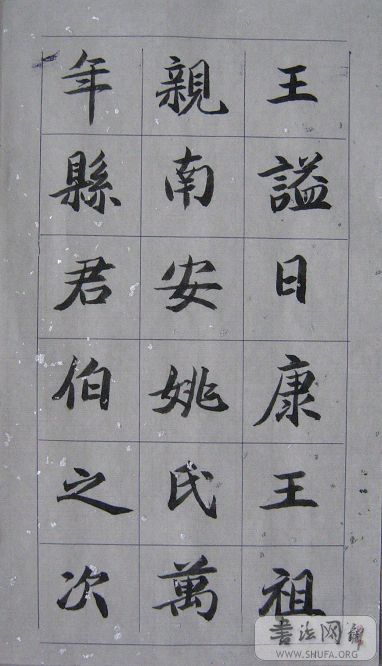 王謚曰康王祖
親南安姚氏萬
年縣君伯之次
書法网
WWW.SHUFA.ORG